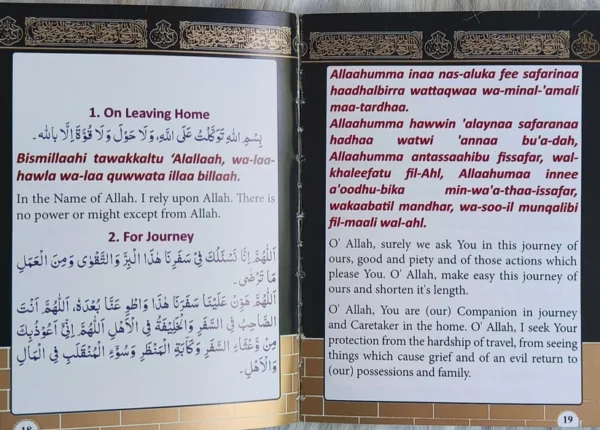 1. On Leaving Home
بِسْمِ اللهِ تَوَكَّلْتُ عَلَى اللهِ، وَلَا حَوْلَ وَلَا قُوَّةَ إِلَّا بِاللهِ.
Bismillaahi tawakkaltu ‘Alallaah, wa-laa-
hawla wa-laa quwwata illaa billaah.
In the Name of Allah. I rely upon Allah. There is
no power or might except from Allah.
2. For Journey
اَللّٰهُمَّ إِنَّا نَسْئَلُكَ فِيْ سَفَرِنَا هٰذَا الْبِرَّ وَالتَّقْوٰى وَمِنَ الْعَمَلِ
مَا تَرْضٰى.
اَللّٰهُمَّ هَوِّنْ عَلَيْنَا سَفَرَنَا هٰذَا وَاطْوِ عَنَّا بُعْدَهُ، اَللّٰهُمَّ أَنْتَ
الصَّاحِبُ فِي السَّفَرِ وَالْخَلِيْفَةُ فِي الْأَهْلِ اَللّٰهُمَّ إِنِّيْ أَعُوْذُبِكَ
مِنْ وَعْثَاءِ السَّفَرِ وَكَآبَةِ الْمَنْظَرِ وَسُوْءِ الْمُنْقَلَبِ فِي الْمَالِ
وَالْأَهْلِ.
18
Allaahumma inaa nas-aluka fee safarinaa
haadhalbirra wattaqwaa wa-minal-'amali
maa-tardhaa.
Allaahumma hawwin 'alaynaa safaranaa
hadhaa watwi 'annaa bu'a-dah,
Allaahumma antassaahibu fissafar, wal-
khaleefatu fil-Ahl, Allaahumaa innee
a'oodhu-bika min-wa'a-thaa-issafar,
wakaabatil mandhar, wa-soo-il munqalibi
fil-maali wal-ahl.
O' Allah, surely we ask You in this journey of
ours, good and piety and of those actions which
please You. O' Allah, make easy this journey of
ours and shorten it's length.
O' Allah, You are (our) Companion in journey
and Caretaker in the home. O' Allah, I seek Your
protection from the hardship of travel, from seeing
things which cause grief and of an evil return to
(our) possessions and family.
19